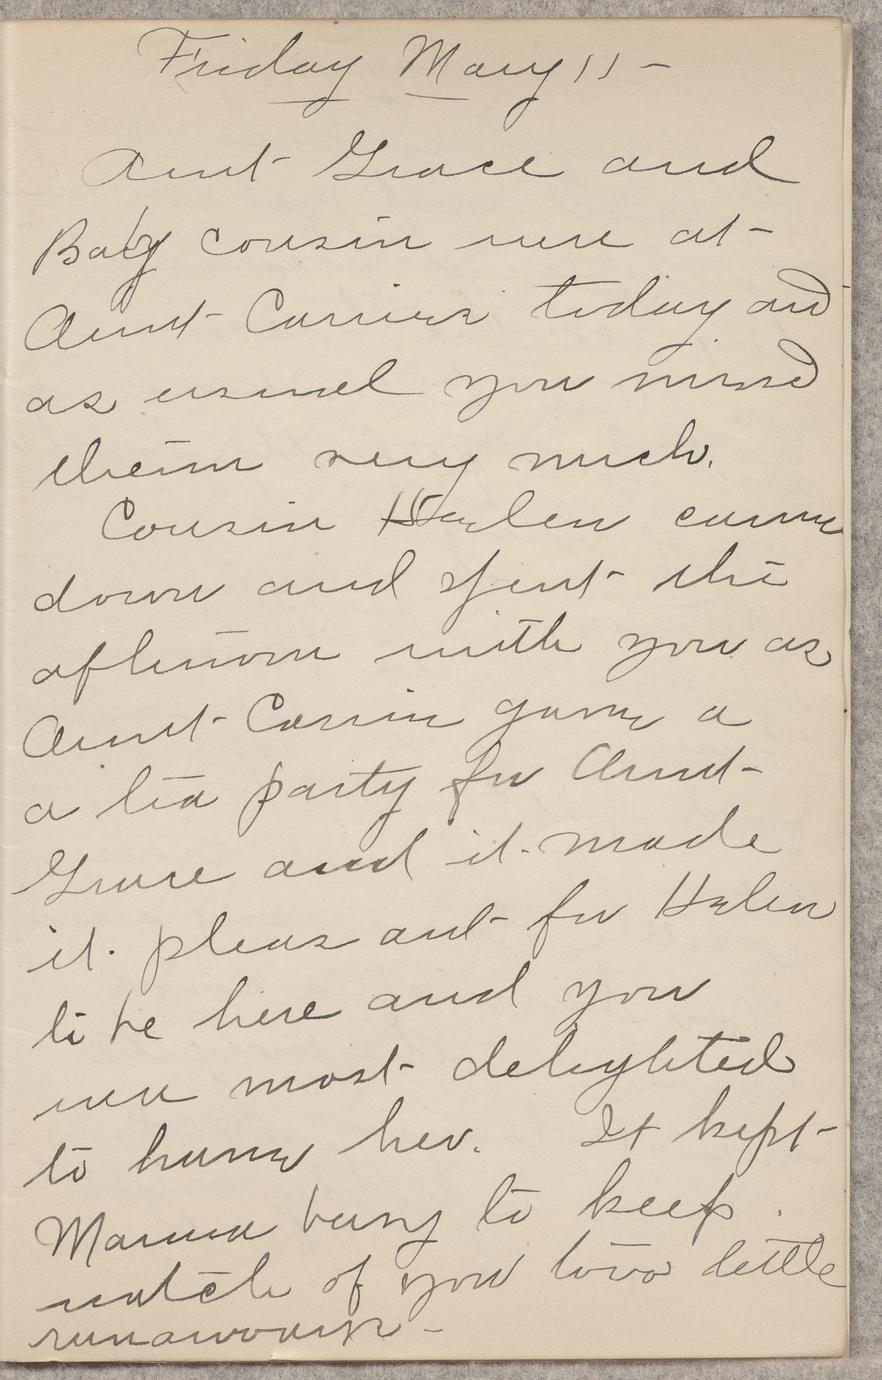 Friday May 11 -
Aunt Grace and
Baby cousin were at
Aunt Carries today and
as usual you missed
them very much.
Cousin Helen came
down and spent the
afternoon with you as
Aunt Carrie gave a
a tea party for Aunt
Grace and it made
it pleasant for Helen
to be here and you
were most delighted
to have her. It kept
Mamma busy to keep
watch of you two little
runaways -